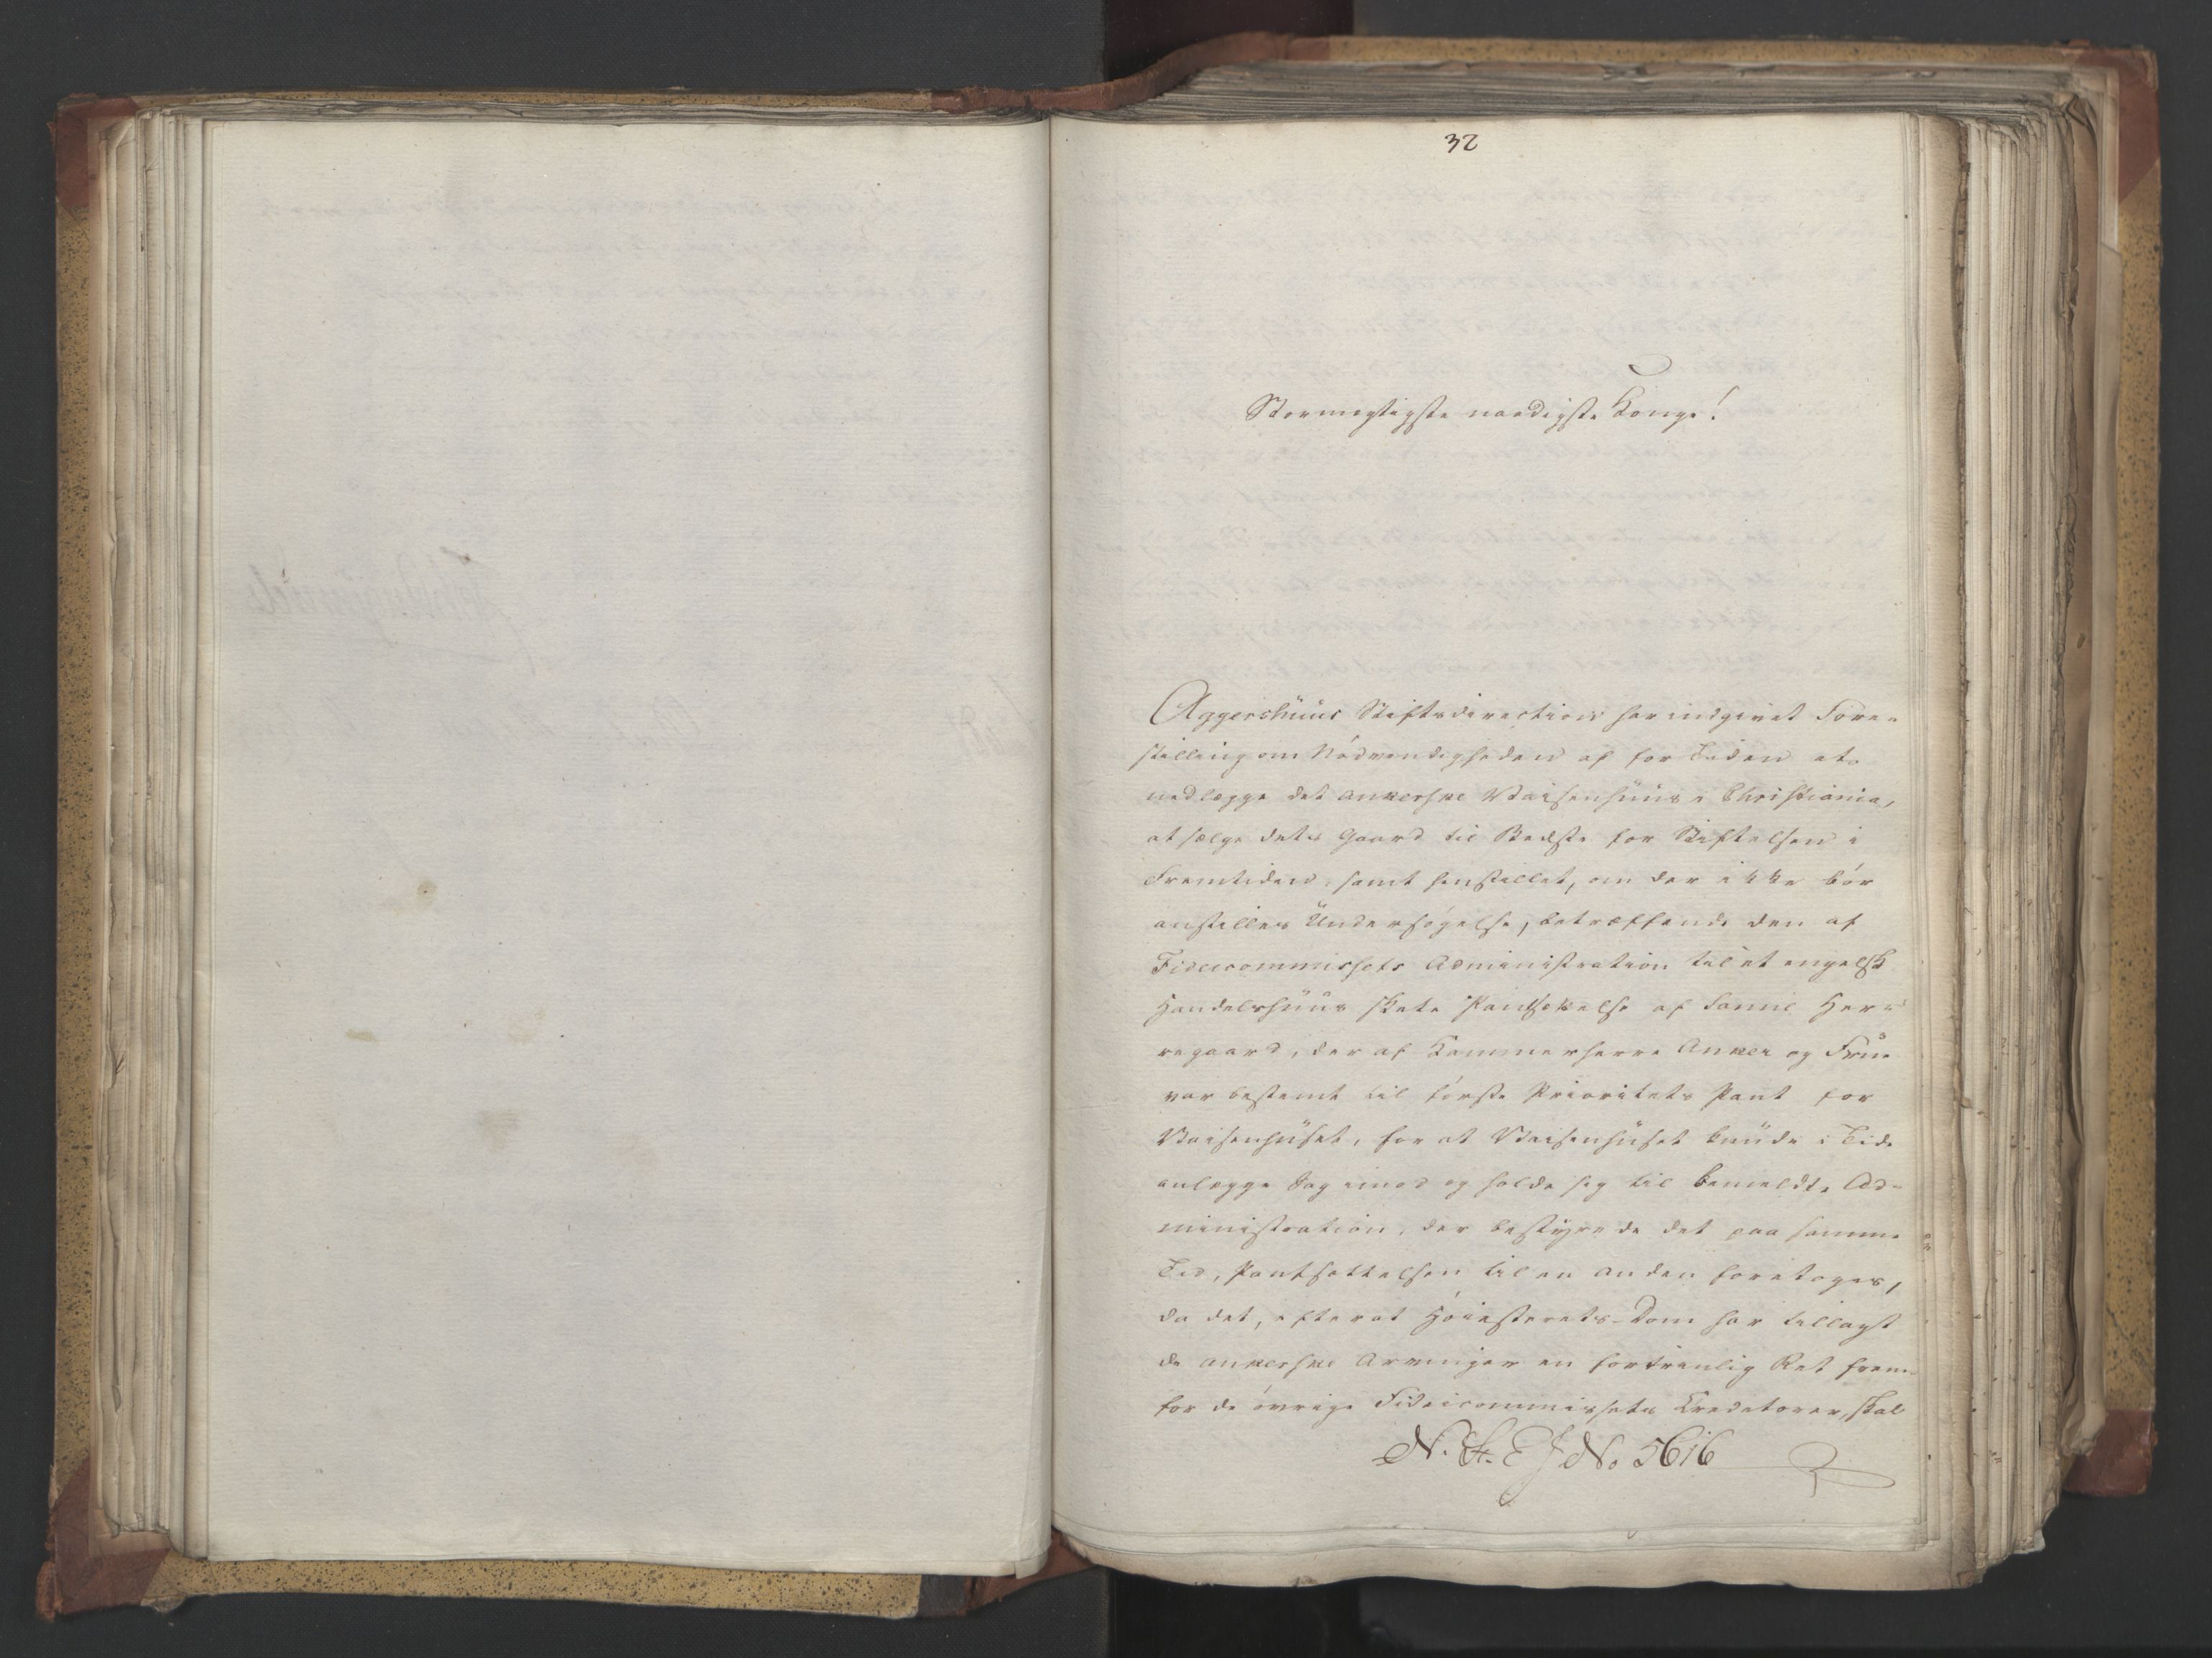 32
Stormægtigste naadigste Konge!
Aggershuus Stiftsdirection har indgivet Fore-
stilling om Nødvendigheden af for Tiden at
nedlægge det Ankerske Waisenhuus i Christiania,
at sælge dets Gaard til Bedste for Stiftelsen i
Fremtiden, samt henstillet, om der ikke bør
anstilles Undersøgelse, betræffende den af
Fideicommissets Administration til et engelsk
Handelshuus skete Pantsættelse af Herr-
regaard, der af Kammerherre Anker og Frue
var bestemt til første Prioritets Pant for
Waisenhuset, for at Waisenhuset kunde i Tide
anlægge Sag imod og holde sig til bemeldte Ad-
ministration, der bestyrede det paa samme
Tid, Pantsættelsen til en anden foretoges,
da det, efterat Høiesterets-Dom har tillagt
de Ankerske Arvinger en fortrinlig Ret frem-
for de øvrige Fideicommissets Creditorer, skal
No 5616